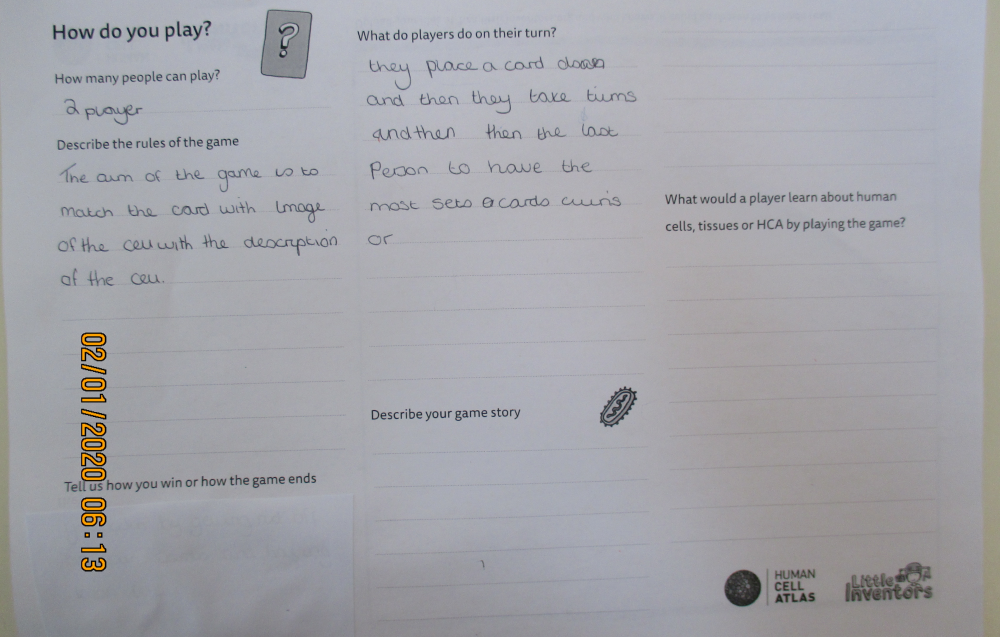 How do you play?
?
How many people can play?
2 player
Describe the rules of the game
The aim of the game is to
match the card with Image
of the cell with the description
of the cell.
Tell us how you win or how the game ends
What do players do on their turn?
they place a card down
and then they take turns
and then then the last
Person to have the
most sets cards wins
or
Describe your game story
What would a player learn about human
cells, tissues or HCA by playing the game?
HUMAN
CELL
ATLAS
Little
Inventors
02/01/2020 06:13